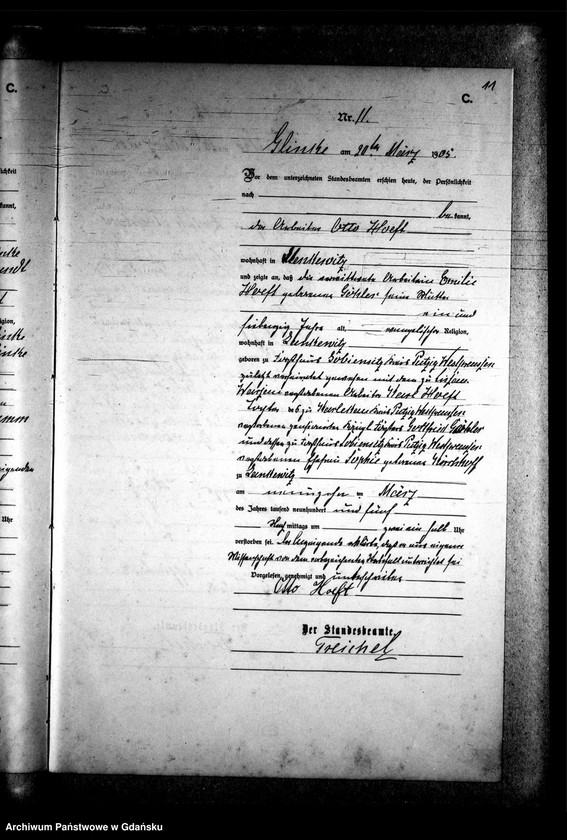 C.
11
C.
Nr. 11.
Glinke am 20ten März 1905.
Vor dem unterzeichneten Standesbeamten erschien heute, der Persönlichkeit
nach
bekannt,
der Arbeiter Otto Hoeft
wohnhaft in
und zeigte an, daß die verwittwete Arbeiterin Emilie
Hoeft geborene Göhler seine Mutter
ein und
siebenzig Jahre alt, evangelischer Religion,
wohnhaft in
geboren zu Forsthaus Sobiensitz Kreis Putzig Westpreußen
zuletzt verheiratet gewesen mit dem zu
verstorbenen Arbeiter Hoeft
Tochter des zu Kreis Putzig Westpreußen
verstorbenen pensionirten Königl. Försters Gottfried Göhler
und dessen zu Forsthaus Sobiensitz Kreis Putzig Westpreußen
verstorbenen Ehefrau Sophie geborene
zu
am neunzehnten März
des Jahres tausend neunhundert und fünf
Nachmittags um zwei ein halb Uhr
verstorben sei. Der Anzeigende erklärte, daß er aus eigener
Wissenschaft von dem vorbezeichneten Sterbefall unterrichtet sei
Vorgelesen, genehmigt und unterschrieben
Otto Hoeft
Der Standesbeamte.
Treichel
Archiwum Państwowe w Gdańsku